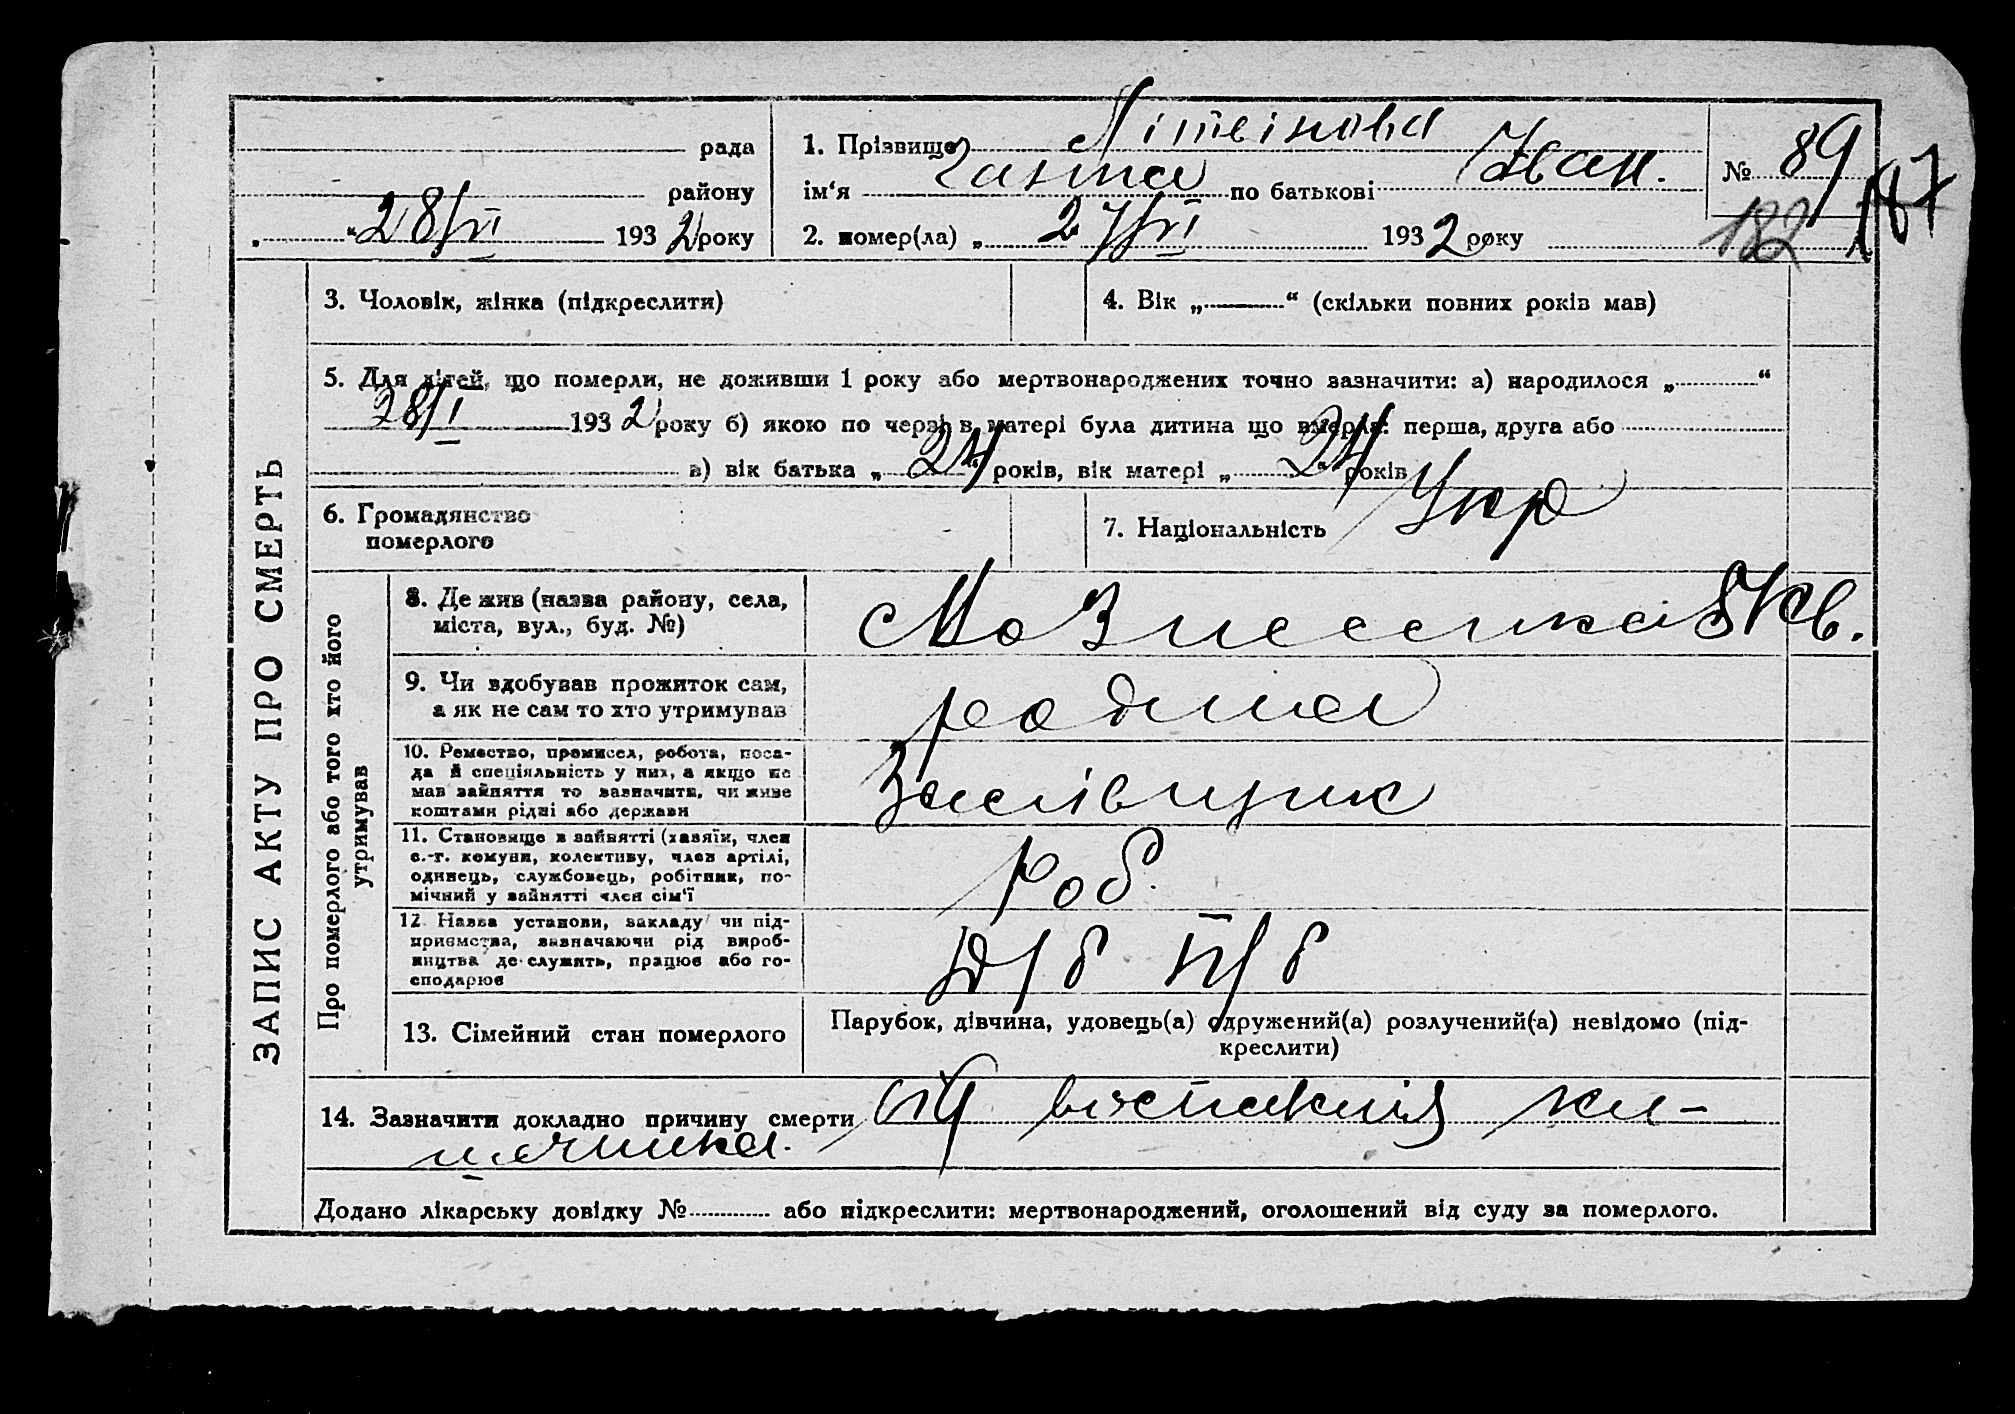 рада
району
„ “ 28/VI 1932 року
1. Прізвище Літвінова
ім‘я Ганна по батькові Іван.
2. помер(ла) „ 27/VI 1932 року
№ 89
182 187
ЗАПИС АКТУ ПРО СМЕРТЬ
3. Чоловік, жінка (підкреслити)
4. Вік „ “ (скільки повних років мав)
5. Для дітей, що померли, не доживши 1 року або мертвонароджених точно зазначити: а) народилося „ “
28/I 1932 року б) якою по черзі в матері була дитина що вмерла: перша, друга або
в) вік батька „ 24 років, вік матері „ 24 років
6. Громадянство
померлого
7. Національність Укр
Про померлого або того хто його
утримував
8. Де жив (назва району, села,
міста, вул., буд. №)
8 кв.
9. Чи здобував прожиток сам,
а як не сам то хто утримував
родина
10. Ремество, промисел, робота, поса-
да й спеціяльність у них, а якщо не
мав зайняття то зазначити, чи живе
коштами рідні або держави
11. Становище в зайнятті (хазяїн, член
с.-г. комуни, колективу, член артілі,
одинець, службовець, робітник, по-
мічний у зайнятті член сім‘ї
Роб.
12. Назва установи, закладу чи під-
приємства, зазначаючи рід вироб-
ництва де служить, працює або го-
сподарює
13. Сімейний стан померлого
Парубок, дівчина, удовець(а) одружений(а) розлучений(а) невідомо (під-
креслити)
14. Зазначити докладно причину смерти від ки-
шечника.
Додано лікарську довідку № або підкреслити: мертвонароджений, оголошений від суду за померлого.